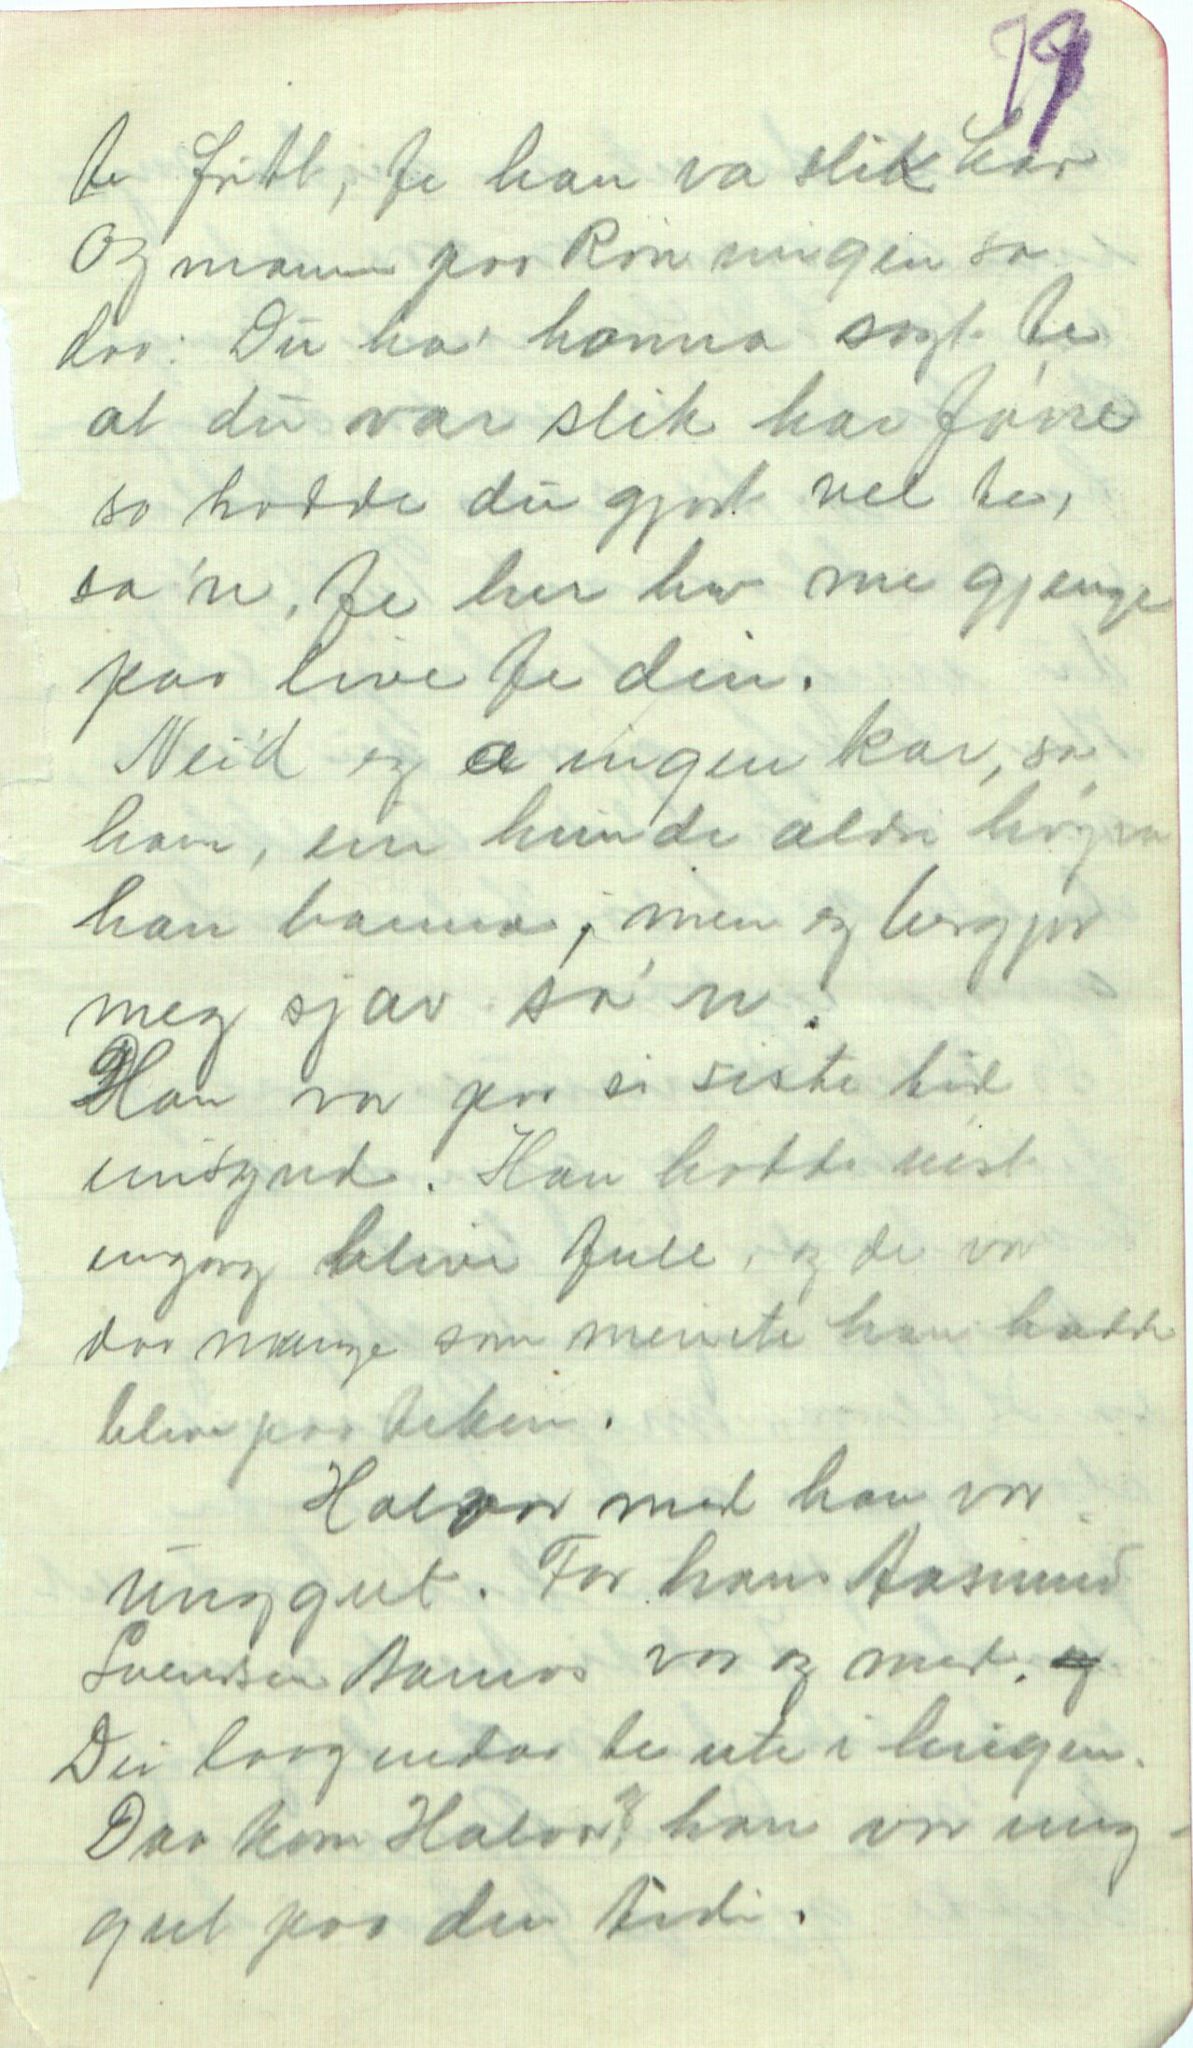 79
te fritt, fe han va slik kar
Og mannen paa Rönningen sa
daa: Du ha' kanna sagt te
at du var slik kar förre
so hadde du gjort vel te,
sa'n, fe her har me gjenge
paa live fe din.
Nei'd eg æ ingen kar, sa
han, ein kunde aldri höyra
han banna, men eg bergjer
meg sjav sa'n.
Han var paa si siste tid
einsynd. Han hadde vist
eingong blive full, og de var
daa mange som meinte han hadde
blive paa teken.
Halvor med han var
unggut. For han Aasmund
Svendsen Aamos var og med.
Dei laag nedaa te ute i lingen.
Daa kom Halvor, han var ung-
gut paa den tidi.